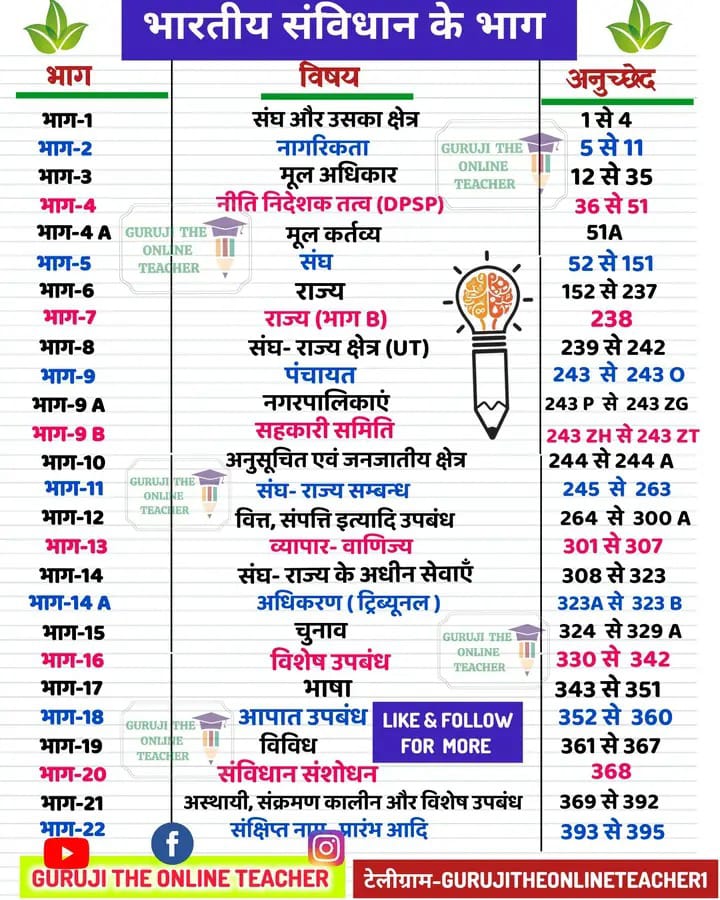 भारतीय संविधान के भाग
भाग विषय अनुच्छेद
भाग-1 संघ और उसका क्षेत्र 1 से 4
भाग-2 नागरिकता 5 से 11
भाग-3 मूल अधिकार 12 से 35
भाग-4 नीति निदेशक तत्व (DPSP) 36 से 51
भाग-4 A मूल कर्तव्य 51A
भाग-5 संघ 52 से 151
भाग-6 राज्य 152 से 237
भाग-7 राज्य (भाग B) 238
भाग-8 संघ- राज्य क्षेत्र (UT) 239 से 242
भाग-9 पंचायत 243 से 243 O
भाग-9 A नगरपालिकाएं 243 P से 243 ZG
भाग-9 B सहकारी समिति 243 ZH से 243 ZT
भाग-10 अनुसूचित एवं जनजातीय क्षेत्र 244 से 244 A
भाग-11 संघ- राज्य सम्बन्ध 245 से 263
भाग-12 वित्त, संपत्ति इत्यादि उपबंध 264 से 300 A
भाग-13 व्यापार- वाणिज्य 301 से 307
भाग-14 संघ- राज्य के अधीन सेवाएँ 308 से 323
भाग-14 A अधिकरण ( ट्रिब्यूनल ) 323A से 323 B
भाग-15 चुनाव 324 से 329 A
भाग-16 विशेष उपबंध 330 से 342
भाग-17 भाषा 343 से 351
भाग-18 आपात उपबंध 352 से 360
भाग-19 विविध 361 से 367
भाग-20 संविधान संशोधन 368
भाग-21 अस्थायी, संक्रमण कालीन और विशेष उपबंध 369 से 392
भाग-22 संक्षिप्त नाम, प्रारंभ आदि 393 से 395
GURUJI THE
ONLINE
TEACHER
GURUJI THE
ONLINE
TEACHER
GURUJI THE
ONLINE
TEACHER
GURUJI THE
ONLINE
TEACHER
GURUJI THE
ONLINE
TEACHER
LIKE & FOLLOW
FOR MORE
f
GURUJI THE ONLINE TEACHER
टेलीग्राम-GURUJITHEONLINETEACHER1